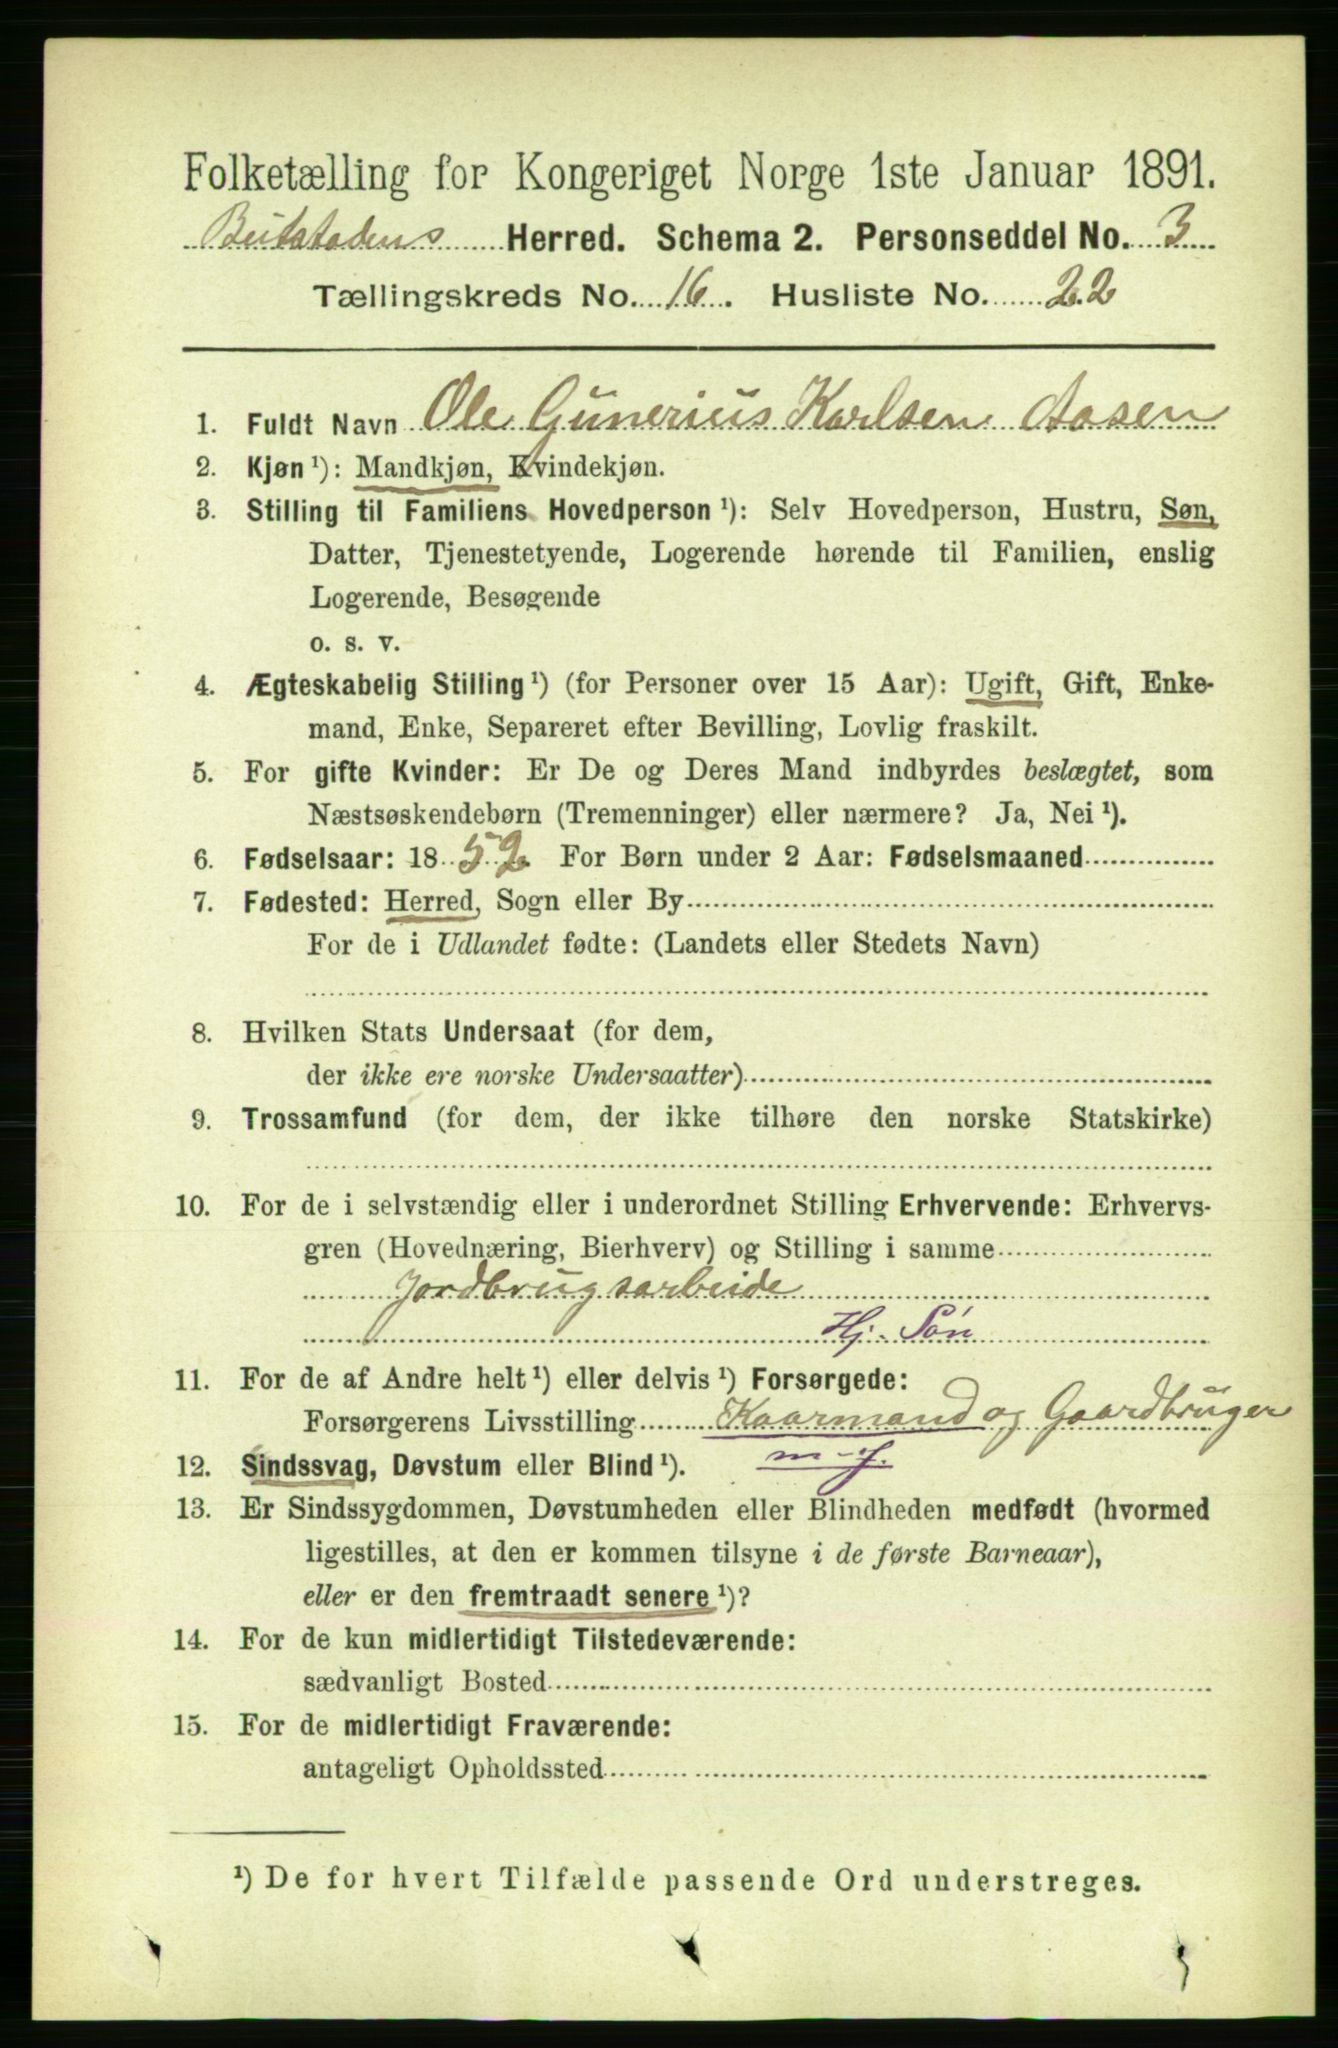 Folketælling for Kongeriget Norge 1ste Januar 1891.
Beitstadens Herred. Schema 2. Personseddel No. 3
Tællingskreds No. 16. Husliste No. 22
1. Fuldt Navn Ole Gunerius Karlsen Aasen
2. Kjøn ¹): Mandkjøn, Kvindekjøn.
3. Stilling til Familiens Hovedperson ¹): Selv Hovedperson, Hustru, Søn,
Datter, Tjenestetyende, Logerende hørende til Familien, enslig
Logerende, Besøgende
o. s. v.
4. Ægteskabelig Stilling ¹) (for Personer over 15 Aar): Ugift, Gift, Enke-
mand, Enke, Separeret efter Bevilling, Lovlig fraskilt.
5. For gifte Kvinder: Er De og Deres Mand indbyrdes beslægtet, som
Næstsøskendebørn (Tremenninger) eller nærmere? Ja, Nei ¹).
6. Fødselsaar: 1852 For Børn under 2 Aar: Fødselsmaaned
7. Fødested: Herred, Sogn eller By
For de i Udlandet fødte: (Landets eller Stedets Navn)
8. Hvilken Stats Undersaat (for dem,
der ikke ere norske Undersaatter)
9. Trossamfund (for dem, der ikke tilhøre den norske Statskirke)
10. For de i selvstændig eller i underordnet Stilling Erhvervende: Erhvervs-
gren (Hovednæring, Bierhverv) og Stilling i samme
Jordbrugsarbeide
Hj. Søn
11. For de af Andre helt ¹) eller delvis ¹) Forsørgede:
Forsørgerens Livsstilling Kaarmand og Gaardbruger
12. Sindssvag, Døvstum eller Blind ¹). m-f.
13. Er Sindssygdommen, Døvstumheden eller Blindheden medfødt (hvormed
ligestilles, at den er kommen tilsyne i de første Barneaar),
eller er den fremtraadt senere ¹)?
14. For de kun midlertidigt Tilstedeværende:
sædvanligt Bosted
15. For de midlertidigt Fraværende:
antageligt Opholdssted
¹) De for hvert Tilfælde passende Ord understreges.